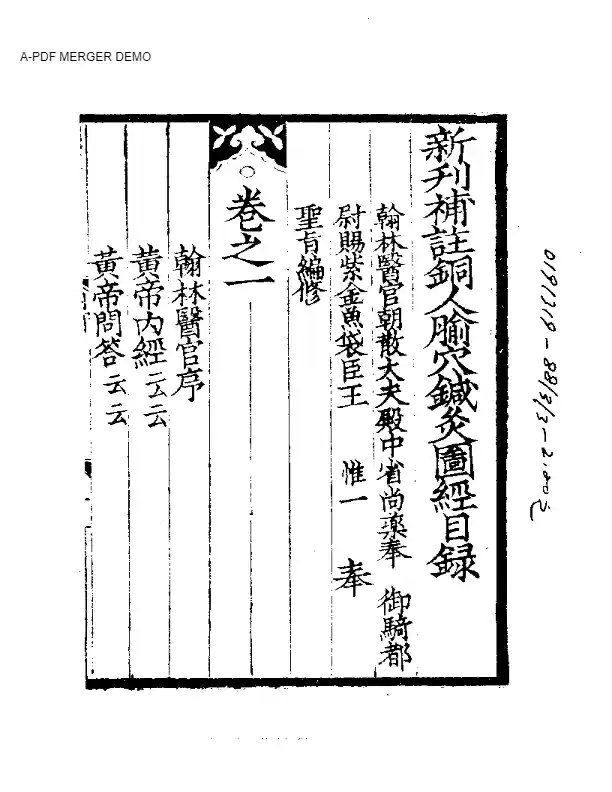 A-PDF MERGER DEMO
新刋補註銅人腧穴鍼灸圖經目録
翰林醫官朝散大夫殿中省尚藥奉 御騎都
尉賜紫金魚袋臣王 惟一 奉
聖旨編修
卷之一
翰林醫官序
黄帝内經云云
黄帝問答云云
0191719-88/3/3-2.00元